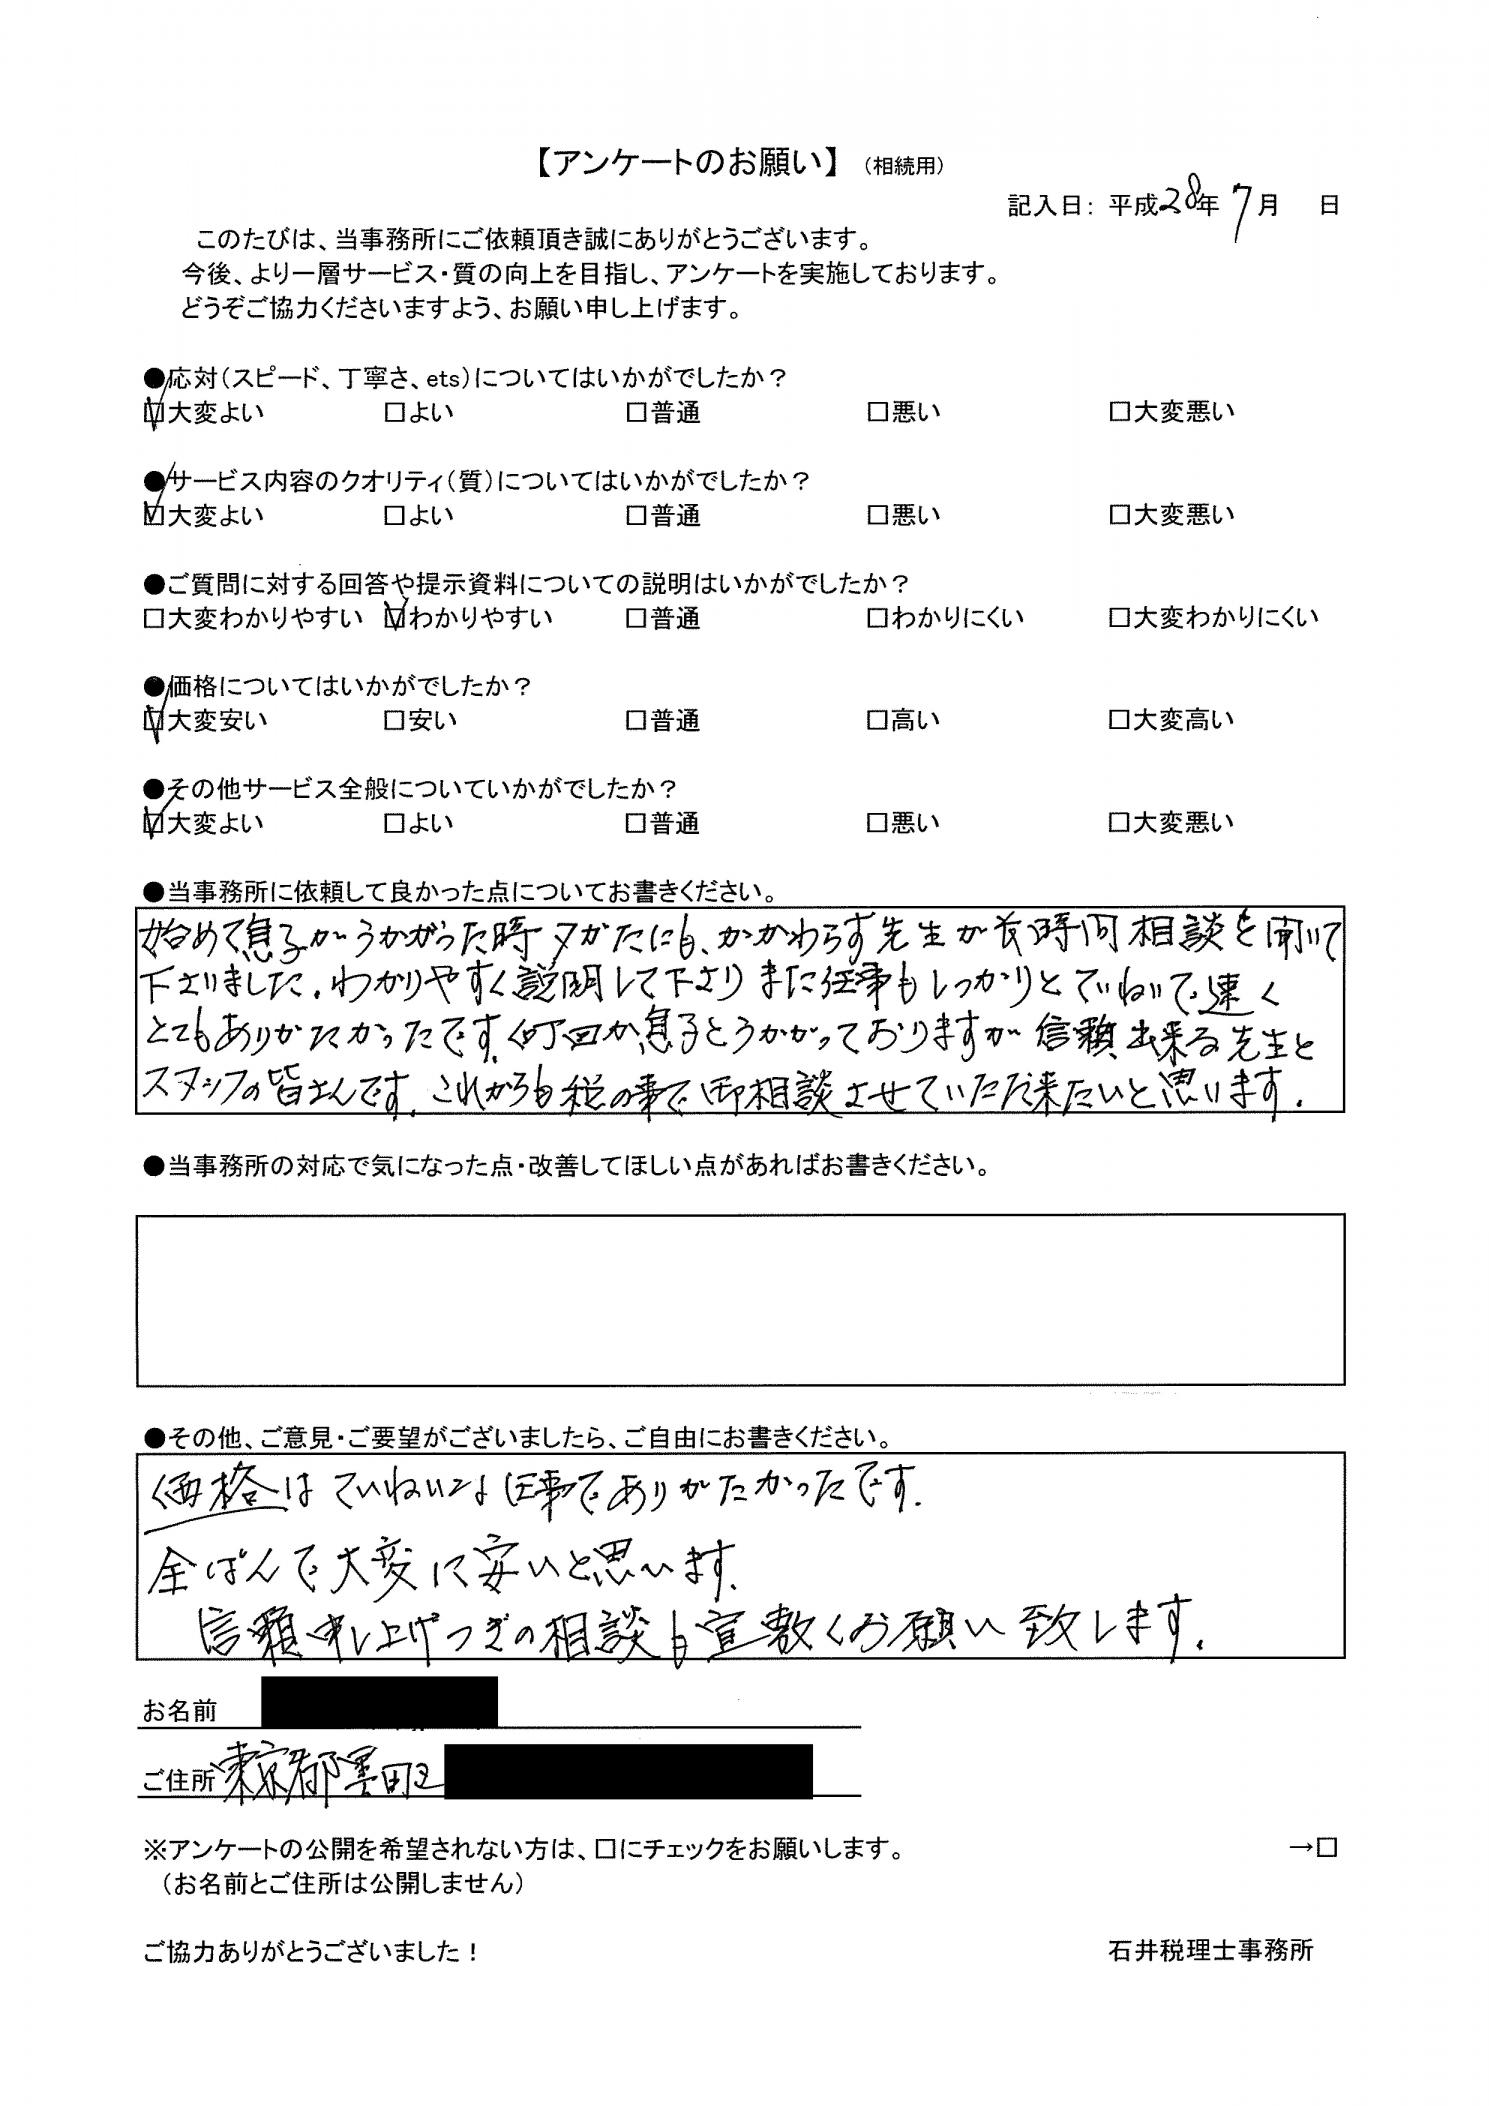 【アンケートのお願い】 （相続用）
記入日： 平成28年 7月 日
このたびは、当事務所にご依頼頂き誠にありがとうございます。
今後、より一層サービス・質の向上を目指し、アンケートを実施しております。
どうぞご協力くださいますよう、お願い申し上げます。
●応対（スピード、丁寧さ、ets）についてはいかがでしたか？
☑大変よい □よい □普通 □悪い □大変悪い
●サービス内容のクオリティ（質）についてはいかがでしたか？
☑大変よい □よい □普通 □悪い □大変悪い
●ご質問に対する回答や提示資料についての説明はいかがでしたか？
□大変わかりやすい ☑わかりやすい □普通 □わかりにくい □大変わかりにくい
●価格についてはいかがでしたか？
☑大変安い □安い □普通 □高い □大変高い
●その他サービス全般についていかがでしたか？
☑大変よい □よい □普通 □悪い □大変悪い
●当事務所に依頼して良かった点についてお書きください。
始めて息子がうかがった時夕がたにも、かかわらず先生が長時間相談を聞いて
下さいました。わかりやすく説明して下さり また仕事もしっかりとていねいで速く
とてもありがたかったです。何回か息子とうかがっておりますが 信頼出来る先生と
スタッフの皆さんです。これからも税の事で御相談させていただ来たいと思います。
●当事務所の対応で気になった点・改善してほしい点があればお書きください。
●その他、ご意見・ご要望がございましたら、ご自由にお書きください。
価格はていねいな仕事でありがたかったです。
全ぱんで大変に安いと思います。
信頼申し上げつぎの相談も宜敷くお願い致します。
お名前
ご住所 東京都墨田区
※アンケートの公開を希望されない方は、□にチェックをお願いします。 →□
（お名前とご住所は公開しません）
ご協力ありがとうございました！ 石井税理士事務所